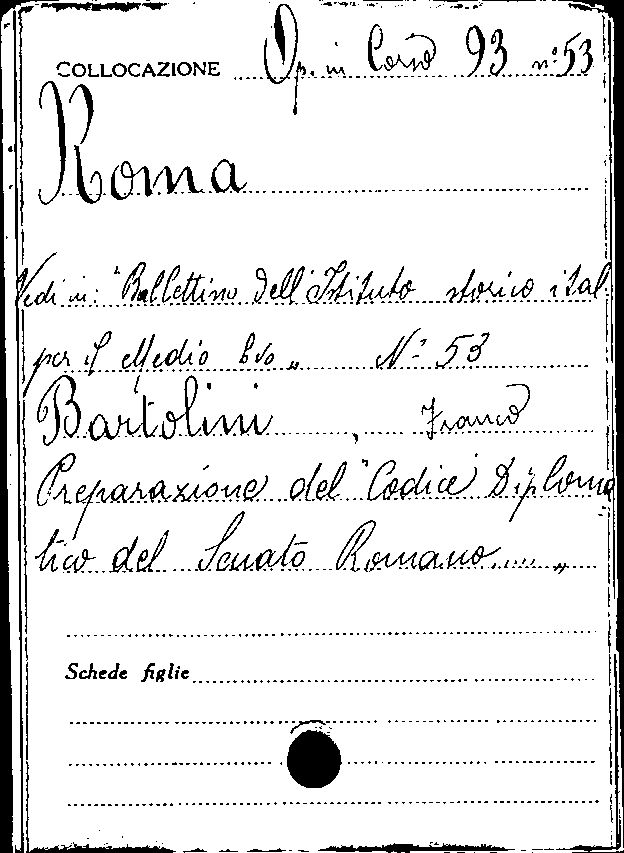 COLLOCAZIONE Op. in Corso 93 n: 53
Roma
Vedi in: "Bullettino dell'Istituto storico ital.
per il Medio Evo „ N: 53
Bartolini, Franco
Preparazione del "Codice Diploma
tico del Senato Romano..... „
Schede figlie